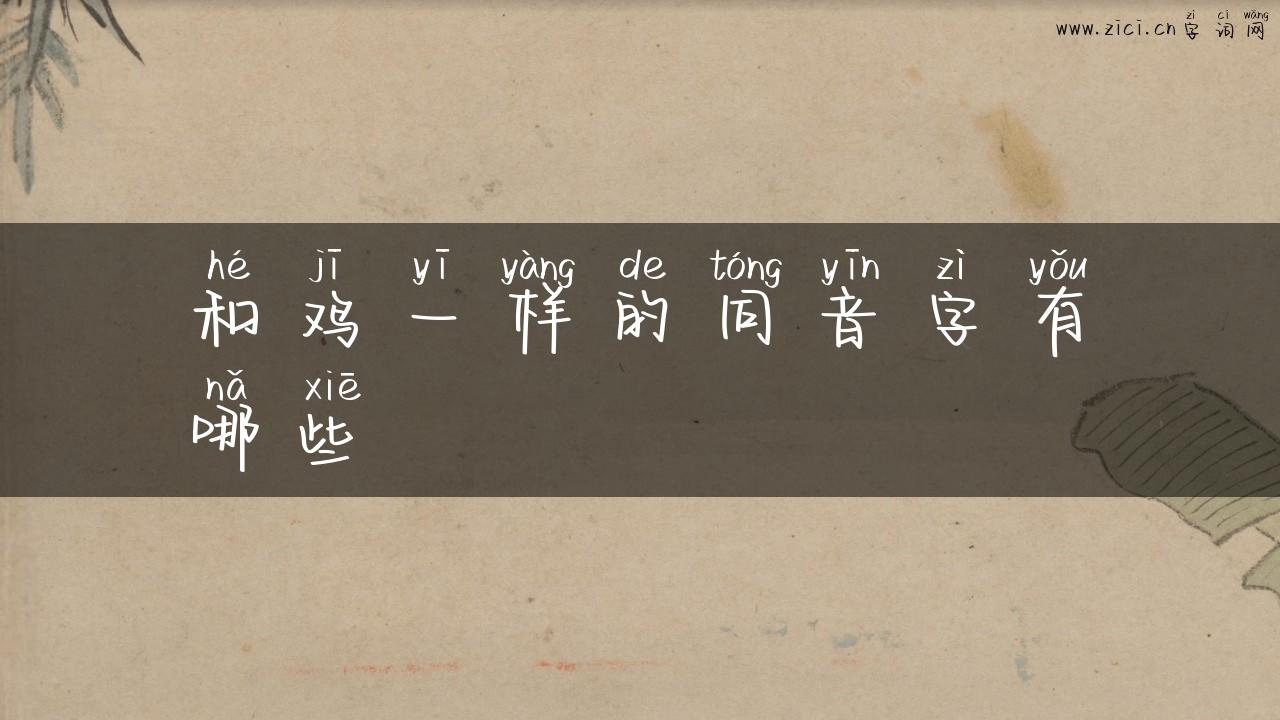 zì cí wǎng
www.zici.cn 字 词 网
hé jī yī yàng de tóng yīn zì yǒu
和 鸡 一 样 的 同 音 字 有
nǎ xiē
哪 些